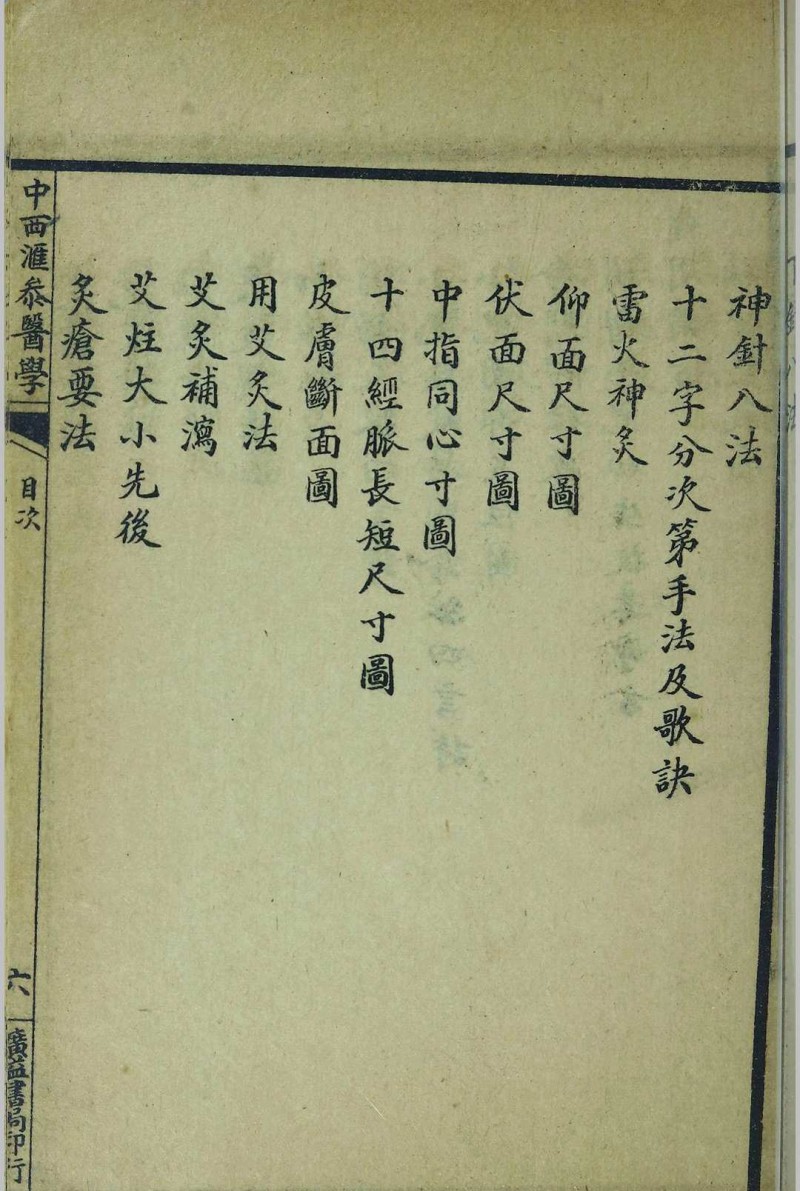 神針八法
十二字分次第手法及歌訣
雷火神灸
仰面尺寸圖
伏面尺寸圖
中指同心寸圖
十四經脈長短尺寸圖
皮膚斷面圖
用艾灸法
艾灸補瀉
艾炷大小先後
灸瘡要法
中西滙叅醫學
目次
六
廣益書局印行